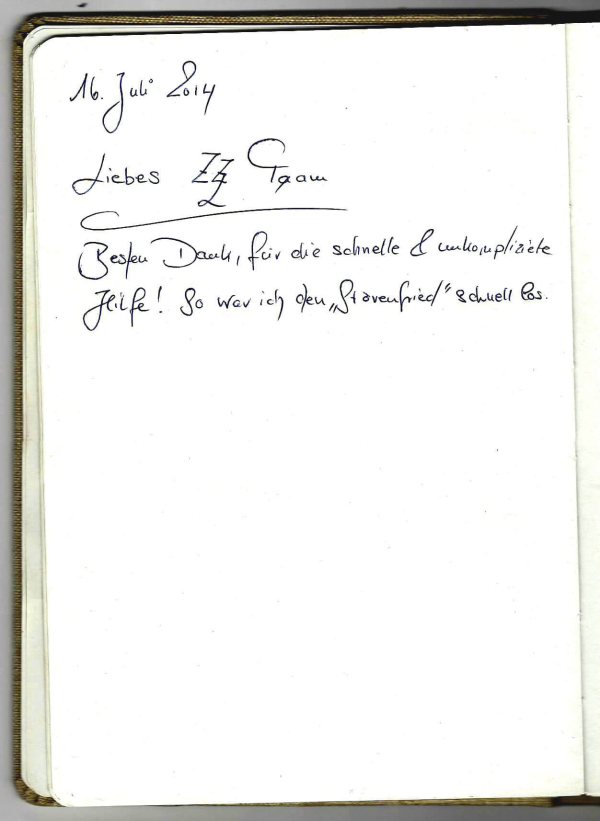 16. Juli 2014
Liebes ZZ Team
Besten Dank, für die schnelle & unkomplizierte
Hilfe! So war ich den „Störenfried" schnell los.